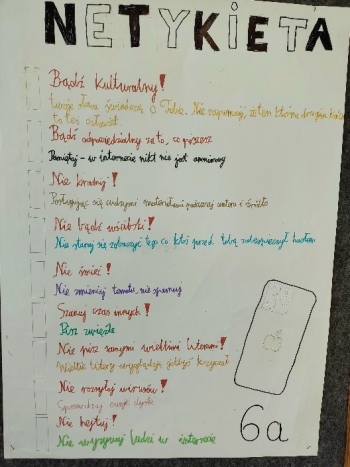 NETYKIETA
Bądź kulturalny!
Twoje słowa świadczą o Tobie. Nie zapominaj, że ten
to też człowiek
Bądź odpowiedzialny za to, co piszesz
Pamiętaj - w internecie nikt nie jest anonimowy
Nie kradnij!
Posługując się cudzymi materiałami podawaj autora i źródło
Nie bądź wścibski!
Nie staraj się zobaczyć tego co ktoś przed tobą zabezpieczył hasłem
Nie śmieć!
Nie zmieniaj tematu, nie spamuj
Szanuj czas innych!
Pisz zwięźle
Nie pisz samymi wielkimi literami!
Wielkie litery wyglądają jakbyś krzyczał
Nie rozsyłaj wirusów!
Sprawdzaj swoje
Nie hejtuj!
Nie wyzywaj ludzi w internecie
6a